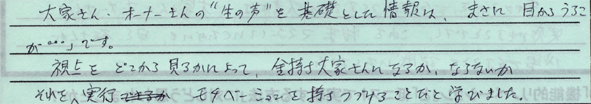 大家さん・オーナーさんの"生の声"を基礎とした情報は、まさに目からうろこ
が…」です。
視点をどこから見るかによって、金持ち大家さんになるか、ならないか
それを、実行 モチベーションを持ちつづけることだと学びました。